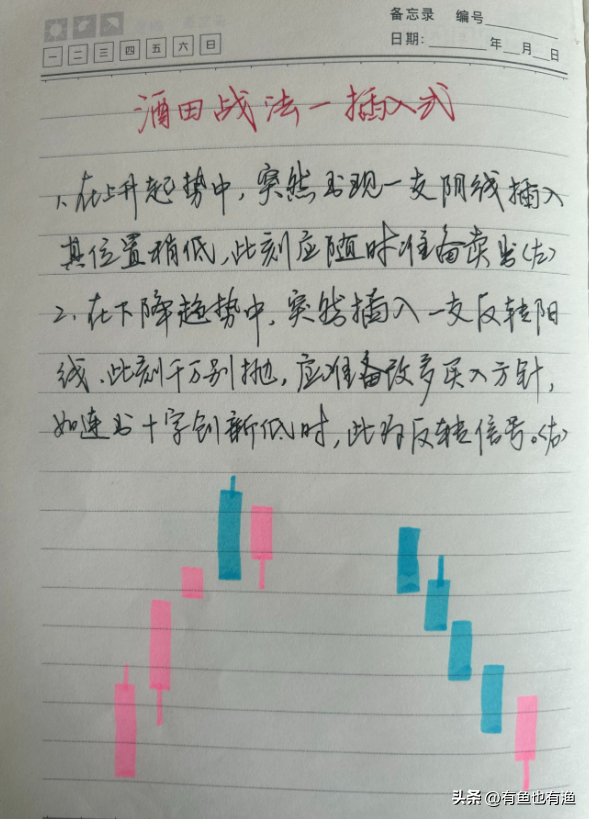 备忘录 编号
一 二 三 四 五 六 日
日期: 年 月 日
酒田战法一插入式
1、在上升起势中,突然出现一支阴线插入
其位置稍低,此刻应随时准备卖出(左)
2、在下降趋势中,突然插入一支反转阳
线、此刻千万别抛,应准备改多买入方针,
如连出十字创新低时,此为反转信号。(右)
头条 @有鱼也有渔